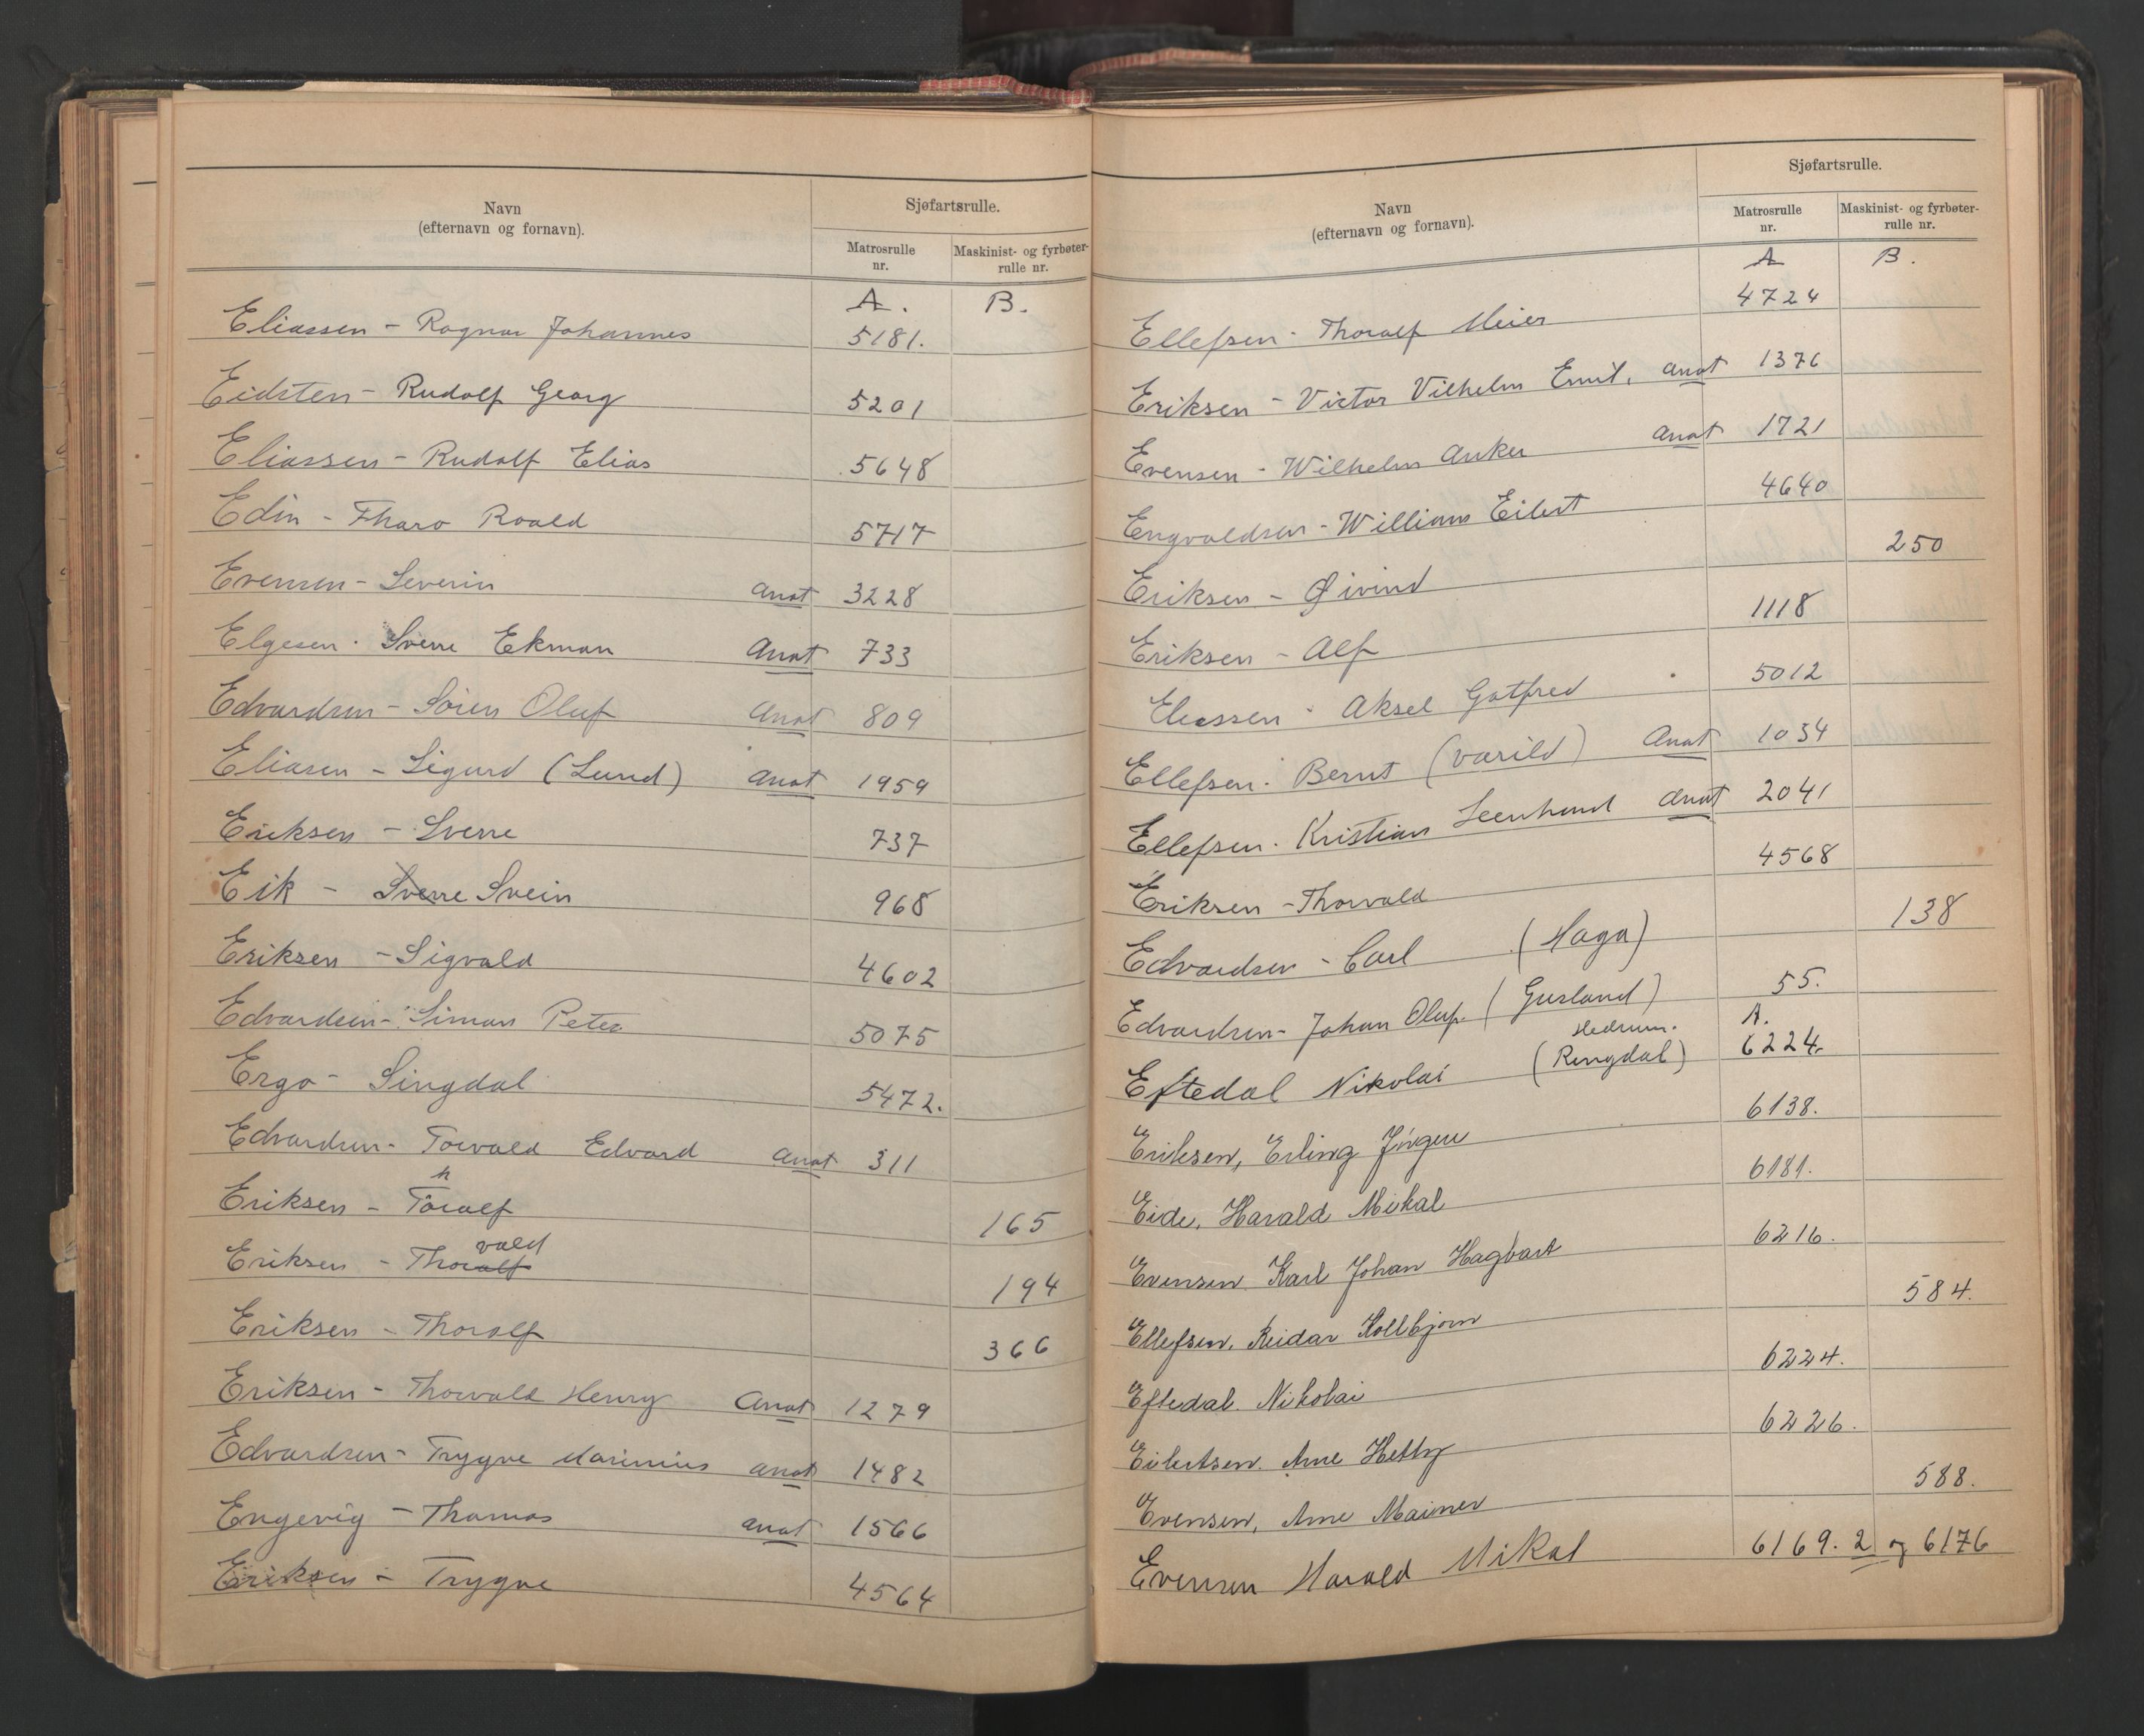 Navn
(efternavn og fornavn).
Sjøfartsrulle.
Matrosrulle
nr.
Maskinist- og fyrbøter-
rulle nr.
A. B.
Eliassen - Ragnar Johannes 5181.
Eidsten - Rudolf Georg 5201
Eliassen - Rudolf Elias 5648
Edin - Tharo Roald 5717
Evensen - Severin anat 3228
Elgesen - Sverre Ekman Anat 733
Edvardsen - Søren Oluf Anat 809
Eliasen - Sigurd (Lund) anat 1959
Eriksen - Sverre 737
Eik - Sverre Svein 968
Eriksen - Sigvald 4602
Edvardsen - Simon Peter 5075
Ergo - Singdal 5472.
Edvardsen - Torvald Edvard anat 311
h
Eriksen - Toralf 165
vald
Eriksen - Thoralf 194
Eriksen - Thoralf 366
Eriksen - Thorvald Henry Anat 1279
Edvardsen - Trygve Marinius anat 1482
Engevig - Thomas anat 1566
Eriksen - Trygve 4564
Navn
(efternavn og fornavn).
Sjøfartsrulle.
Matrosrulle
nr.
Maskinist- og fyrbøter-
rulle nr.
A B.
Ellefsen - Thoralf Meier 4724
Eriksen - Victor Vilhelm Emil. anat 1376
Evensen - Wilhelm Anker anat 1721
Engvaldsen - William Eilert 4640
Eriksen - Øivind 250
Eriksen - Alf 1118
Eliassen - Aksel Gotfred 5012
Ellefsen - Bernt (Varild) Anat 1034
Ellefsen - Kristian Leenhard anat 2041
Eriksen - Thorvald 4568
Edvardsen - Carl (Haga) 138
Edvardsen - Johan Oluf (Gusland) 55.
Hedrum. A.
Eftedal Nikolai (Ringdal) 6224.
Eriksen, Erling Jörgen 6138.
Eide, Harald Mikal 6181.
Evensen Karl Johan Hagbart 6216.
Ellefsen, Reidar Kollbjørn 584.
Eftedal. Nikolai 6224.
Eilertsen. Arne 6226.
Evensen, Arne Mainer 588.
Evensen Harald Mikal 6169.2 og 6176